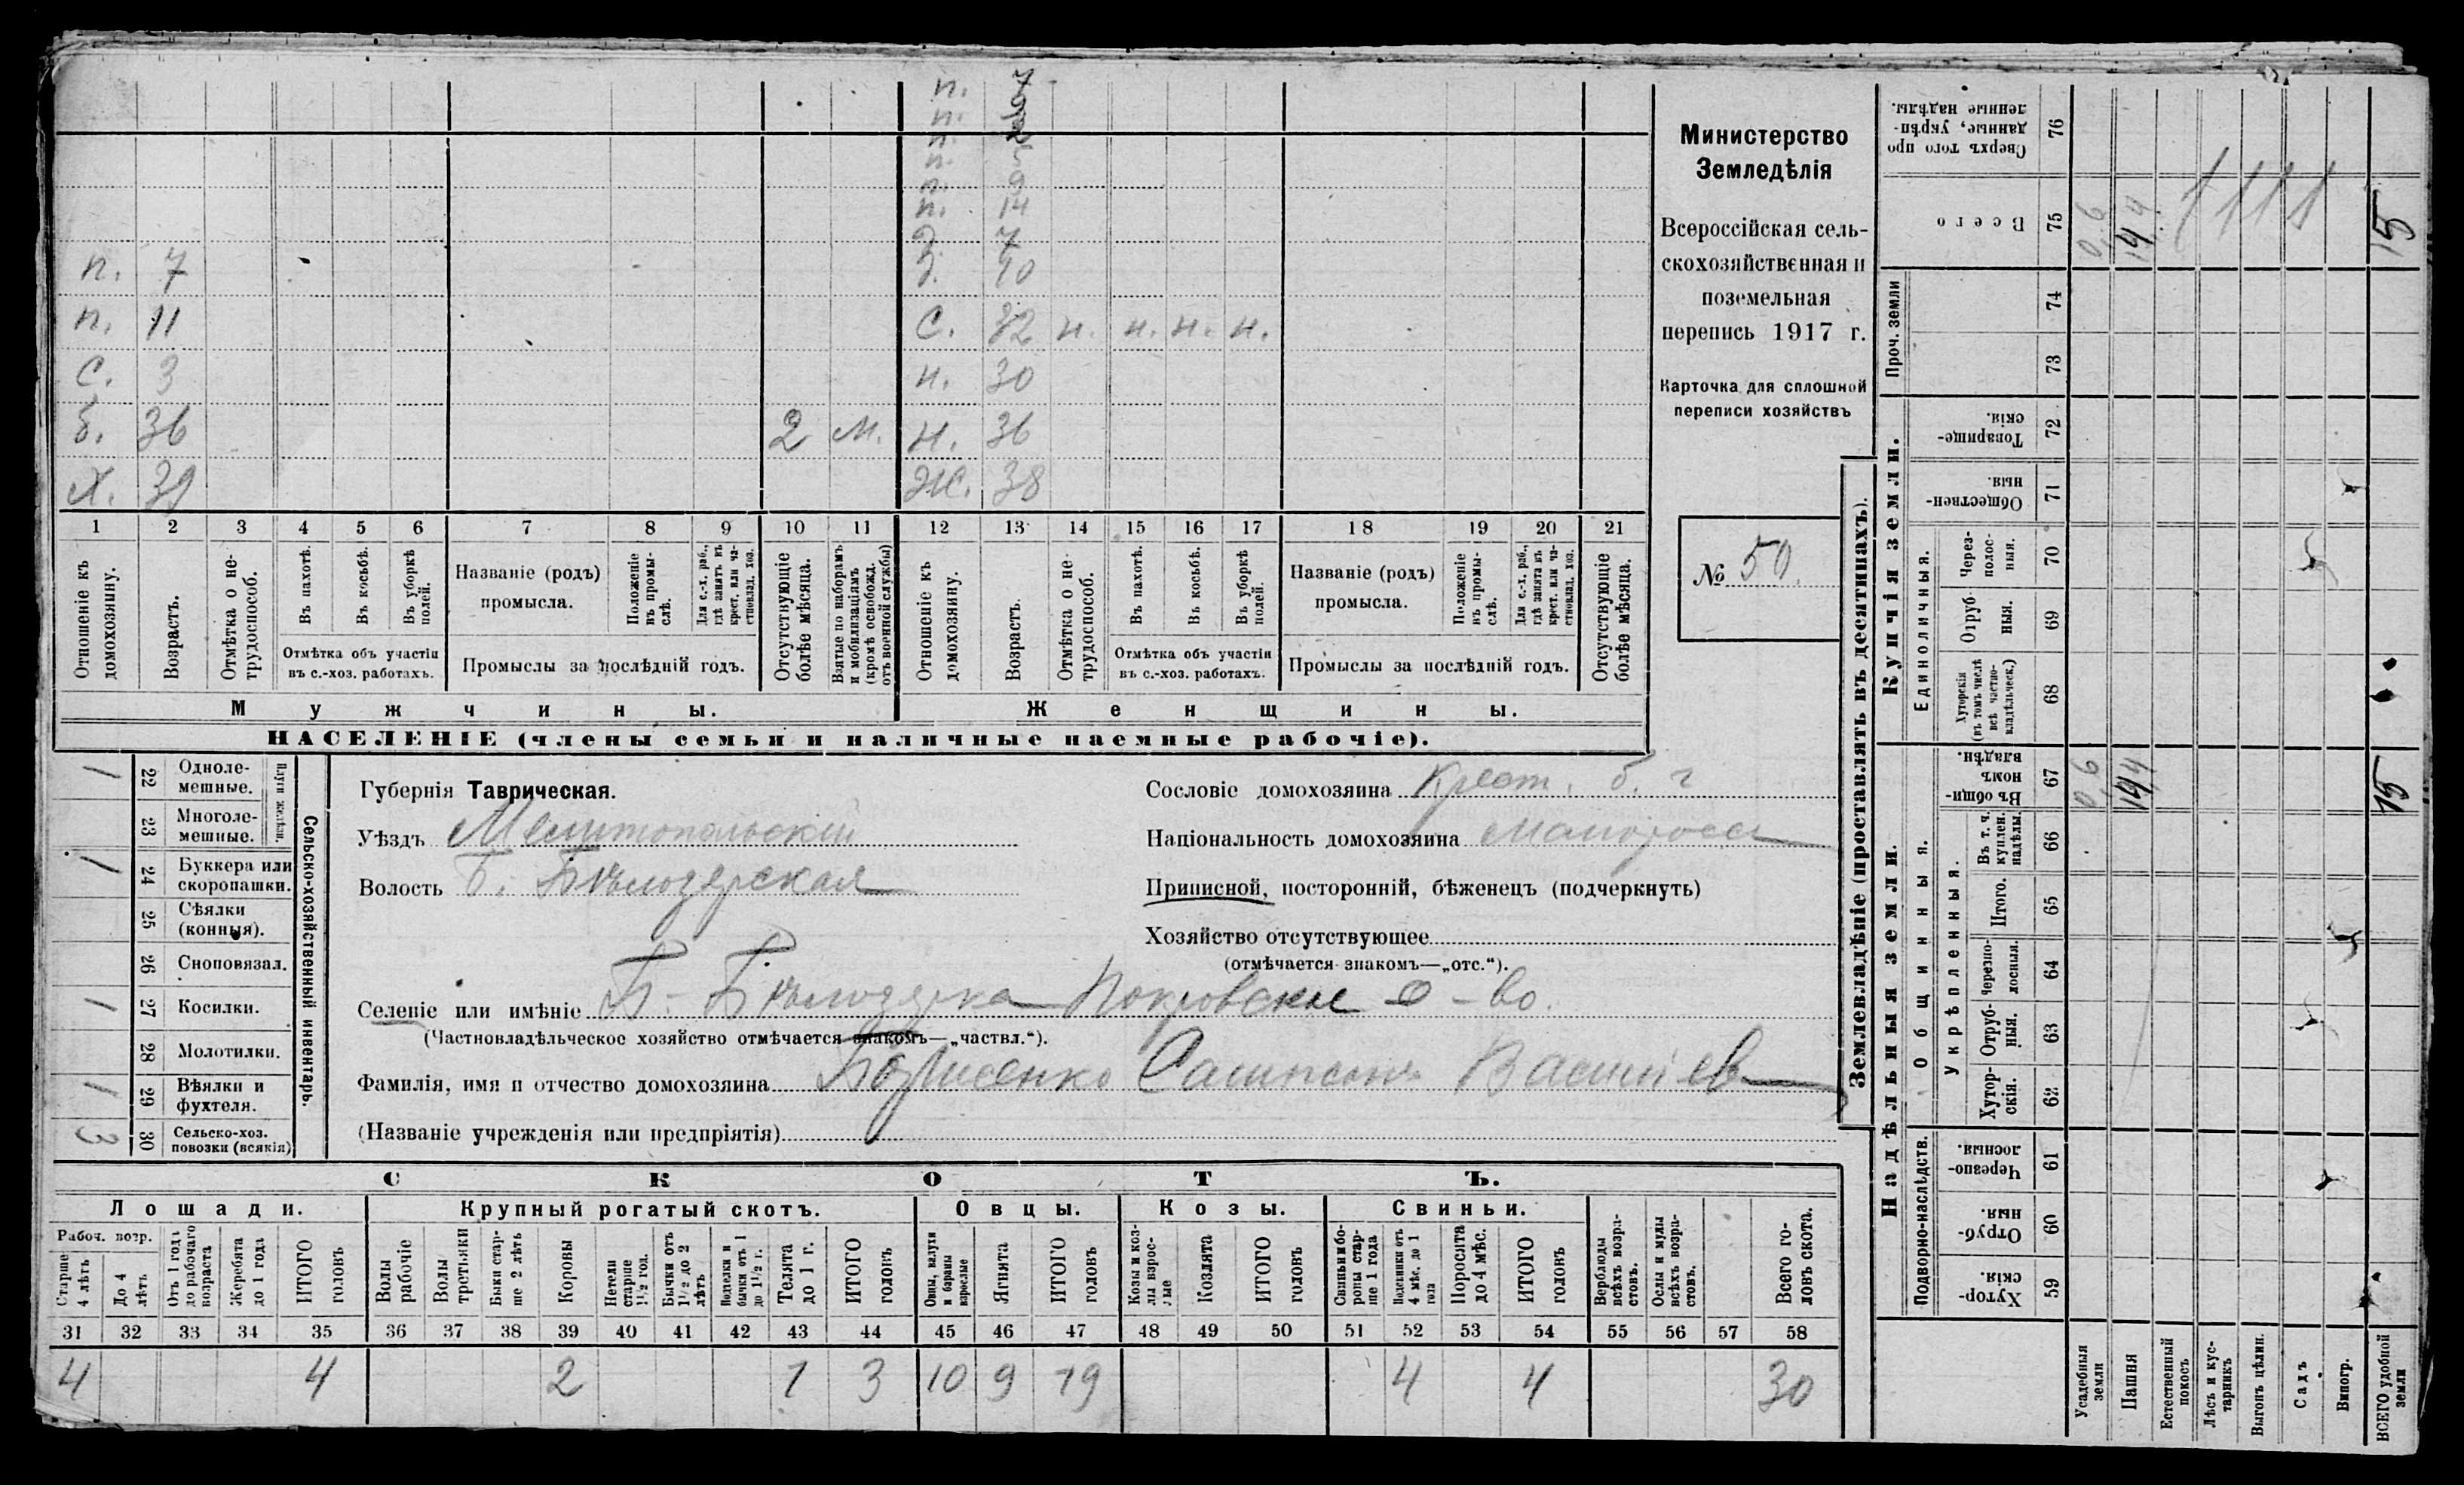 п. 7
п.
п.
п. 5
п. 9
п. 14
7
п. 7 10
п. 11 С. 32 н. н. н. н.
С. 3 н. 30
б. 36 2 м. н. 36
Х. 39 Ж. 38
1 2 3 4 5 6 7 8 9 10 11 12 13 14 15 16 17 18 19 20 21
Отношеніе къ домохозяину.
Возрастъ.
Отмѣтка о не-трудоспособ.
Въ пахотѣ.
Въ косьбѣ.
Въ уборкѣ полей.
Отмѣтка объ участіи
въ с.-хоз. работахъ.
Названіе (родъ)
промысла.
Положеніе въ промы-слѣ.
Для с.-х. раб., гдѣ занятъ въ крест. или ча-стновлад. хоз.
Промыслы за послѣдній годъ.
Отсутствующіе болѣе мѣсяца.
Взятые по наборамъ и мобилизаціямъ (кромѣ освобожд. отъ военной службы)
Отношеніе къ домохозяину.
Возрастъ.
Отмѣтка о не-трудоспособ.
Въ пахотѣ.
Въ косьбѣ.
Въ уборкѣ полей.
Отмѣтка объ участіи
въ с.-хоз. работахъ.
Названіе (родъ)
промысла.
Положеніе въ промы-слѣ.
Для с.-х. раб., гдѣ занята въ крест. или ча-стновлад. хоз.
Промыслы за послѣдній годъ.
Отсутствующіе болѣе мѣсяца.
Мужчины. Женщины.
НАСЕЛЕНІЕ (члены семьи и наличные наемные рабочіе).
Министерство
Земледѣлія
Всероссійская сель-
скохозяйственная и
поземельная
перепись 1917 г.
Карточка для сплошной
переписи хозяйствъ
№ 50.
1 22 Одноле-мешные.
23 Многоле-мешные.
Плуги желѣзн.
1 24 Буккера или скоропашки.
25 Сѣялки (конныя).
26 Сноповязал.
1 27 Косилки.
28 Молотилки.
1 29 Вѣялки и фухтеля.
3 30 Сельско-хоз. повозки (всякія)
Сельско-хозяйственный инвентарь.
Губернія Таврическая.
Уѣздъ Мелитопольскій
Волость Б. Бѣлозерская
Сословіе домохозяина Крест. б. г
Національность домохозяина малоросс
Приписной, посторонній, бѣженецъ (подчеркнуть)
Хозяйство отсутствующее
(отмѣчается знакомъ—„отс.“).
Селеніе или имѣніе Б-Бѣлозерка Покровское о-во.
(Частновладѣльческое хозяйство отмѣчается знакомъ—„частвл.“).
Фамилія, имя и отчество домохозяина Борисенко Сампсонъ Василіев
(Названіе учрежденія или предпріятія)
СКОТЪ.
Лошади. Крупный рогатый скотъ. Овцы. Козы. Свиньи.
Рабоч. возр.
Старше 4 лѣтъ
До 4 лѣтъ
Отъ 1 года до рабочаго возраста
Жеребята до 1 года
ИТОГО головъ
Волы рабочіе
Волы третьяки
Быки стар-ше 2 лѣтъ
Коровы
Нетели старше 1½ год.
Бычки отъ 1½ до 2 лѣтъ
Подтелки и бычки отъ 1 до 1½ г.
Телята до 1 г.
ИТОГО головъ
Овцы, валухи и бараны взрослые
Ягнята
ИТОГО головъ
Козы и коз-лы взрос-лые
Козлята
ИТОГО головъ
Свиньи и бо-ровы стар-ше 1 года
Подсвинки отъ 4 мѣс. до 1 года
Поросята до 4 мѣс.
ИТОГО головъ
Верблюды всѣхъ возра-стовъ.
Ослы и мулы всѣхъ возра-стовъ.
Всего го-ловъ скота.
31 32 33 34 35 36 37 38 39 40 41 42 43 44 45 46 47 48 49 50 51 52 53 54 55 56 57 58
4 4 2 1 3 10 9 19 4 4 30
Землевладѣніе (проставлять въ десятинахъ).
Надѣльныя земли. Купчія земли. Проч. земли
Подворно-наслѣдств.
Общинныя.
Укрѣпленныя.
Единоличныя.
Хутор-скія. 59
Отруб-ныя. 60
Черезпо-лосныя. 61
Хутор-скія. 62
Отруб-ныя. 63
Черезпо-лосныя. 64
Итого. 65
Въ т. ч. куплен. надѣлы. 66
Въ общи-номъ владѣн. 67
Хуторскія (въ томъ числѣ всѣ частно-владѣльческ.) 68
Отруб-ныя. 69
Через-полос-ныя. 70
Обществен-ныя. 71
Товарище-скія. 72
73
74
Всего 75
Сверхъ того про данные, укрѣп-ленные надѣлы. 76
Усадебныя земли 0,6 0,6
Пашня 14,4 14,4
Естественный покосъ
Лѣсъ и кус-тарникъ
Выгонъ цѣлин.
Садъ
Виногр.
ВСЕГО удобной земли 15 15